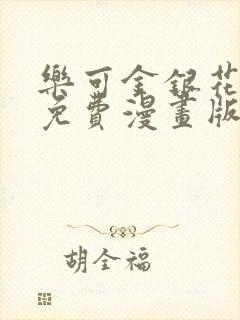 樂可金銀花
免費漫畫版
胡全福